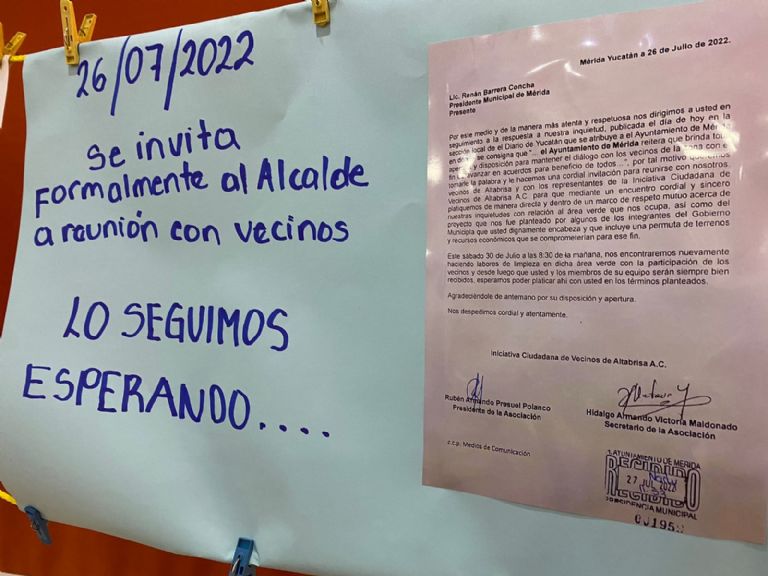 26/07/2022
Se invita
Formalmente al Alcalde
a reunión con vecinos
LO SEGUIMOS
ESPERANDO....
Mérida Yucatán a 26 de Julio de 2022.
Lic. Renán Barrera Concha
Presidente Municipal de Mérida
Presente
Por este medio y de la manera más atenta y respetuosa nos dirigimos a usted en
seguimiento a la respuesta a nuestra inquietud, publicada el día de hoy en la
sección local del Diario de Yucatán que se atribuye a el Ayuntamiento de Mérida
en donde se consigna que "... el Ayuntamiento de Mérida reitera que brinda toda
apertura y disposición para mantener el diálogo con los vecinos de la zona con el
fin de avanzar en acuerdos para beneficio de todos ...", por tal motivo queremos
tomarle la palabra y le hacemos una cordial invitación para reunirse con nosotros,
vecinos de Altabrisa y con los representantes de la Iniciativa Ciudadana de
Vecinos de Altabrisa A.C para que mediante un encuentro cordial y sincero
platiquemos de manera directa y dentro de un marco de respeto mutuo acerca de
nuestras inquietudes con relación al área verde que nos ocupa, así como del
proyecto que nos fue planteado por algunos de los integrantes del Gobierno
Municipla que usted dignamente encabeza y que incluye una permuta de terrenos
y recursos económicos que se comprometerían para ese fin.
Este sábado 30 de Julio a las 8:30 de la mañana, nos encontraremos nuevamente
haciendo labores de limpieza en dicha área verde con la participación de los
vecinos y desde luego que usted y los miembros de su equipo serán siempre bien
recibidos, esperamos poder platicar ahí con usted en los términos planteados.
Agradeciéndole de antemano por su disposición y apertura.
Nos despedimos cordial y atentamente.
Iniciativa Ciudadana de Vecinos de Altabrisa A.C.
Rubén Armando Presuel Polanco
Presidente de la Asociación
Hidalgo Armando Victoria Maldonado
Secretario de la Asociación
c.c.p. Medios de Comunicación
AYUNTAMIENTO DE MERIDA
RECIBIDO
27 JUL 2022
RECIBIDO
PRESIDENCIA MUNICIPAL